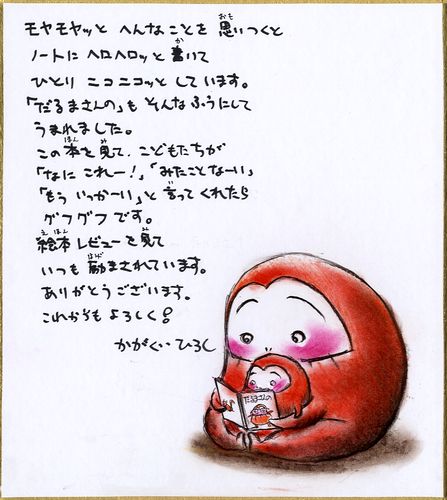 モヤモヤッと へんなことを 思いつくと
ノートに ヘロヘロッと 書いて
ひとり ニコニコッと しています。
「だるまさんの」も そんなふうにして
うまれました。
この 本を 見て、こどもたちが
「なに これー!」「みたことなーい」
「もう いっかーい」と 言って くれたら
グフグフ です。
絵本 レビューを 見て
いつも 励まされています。
ありがとうございます。
これからも よろしく!
かがくい ひろし
だるまさんの